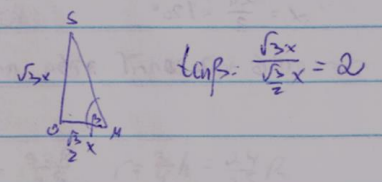 S
√3x
O β M
√3/2 x
tanβ = √3x / (√3/2 x) = 2